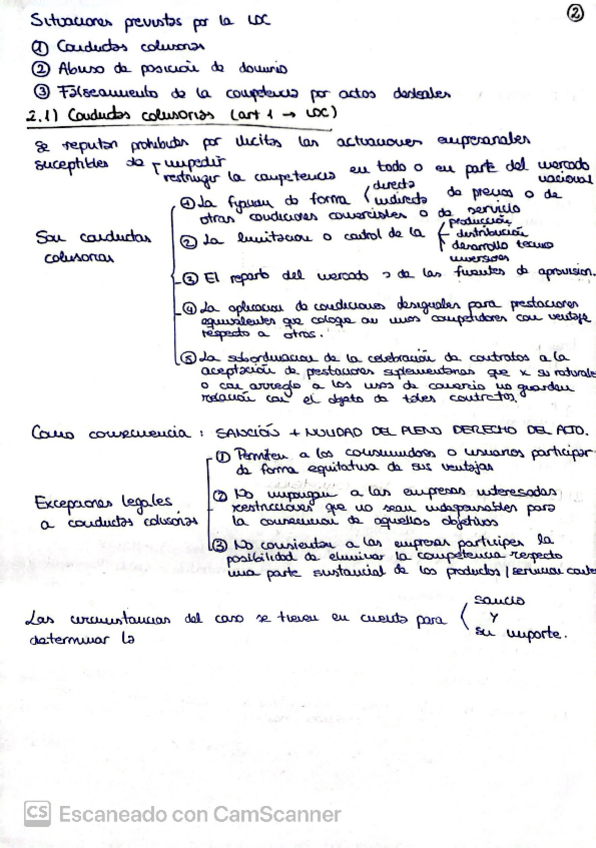 ②
Situaciones previstas por la LDC
① Conductas colusorias
② Abuso de posición de dominio
③ Falseamiento de la competencia por actos desleales
2.1) Conductas colusorias (art 1 → LDC)
Se reputan prohibidas por ilícitas las actuaciones empresariales
suceptibles de impedir
restringir la competencia en todo o en parte del mercado
nacional
Son conductas
colusorias
① La fijación de forma directa
indirecta de precios o de
otras condiciones comerciales o de servicio
② La limitación o control de la producción
distribución
desarrollo técnico
inversiones
③ El reparto del mercado o de las fuentes de aprovision.
④ La aplicación de condiciones desiguales para prestaciones
equivalentes que coloque a unos competidores con ventaja
respecto a otros.
⑤ La subordinación de la celebración de contratos a la
aceptación de prestaciones suplementarias que x su naturale
o con arreglo a los usos de comercio no guardan
relación con el objeto de tales contratos.
Como consecuencia: SANCIÓN + NULIDAD DEL PLENO DERECHO DEL ACTO.
Excepciones legales
a conductas colusorias
① Permiten a los consumidores o usuarios participar
de forma equitativa de sus ventajas
② No impongan a las empresas interesadas
restricciones que no sean indispensables para
la consecución de aquellos objetivos
③ No consientan a las empresas partícipes la
posibilidad de eliminar la competencia respecto
una parte sustancial de los productos / servicios
Las circunstancias del caso se tienen en cuenta para
determinar la
sancio
y
su importe.
CS Escaneado con CamScanner